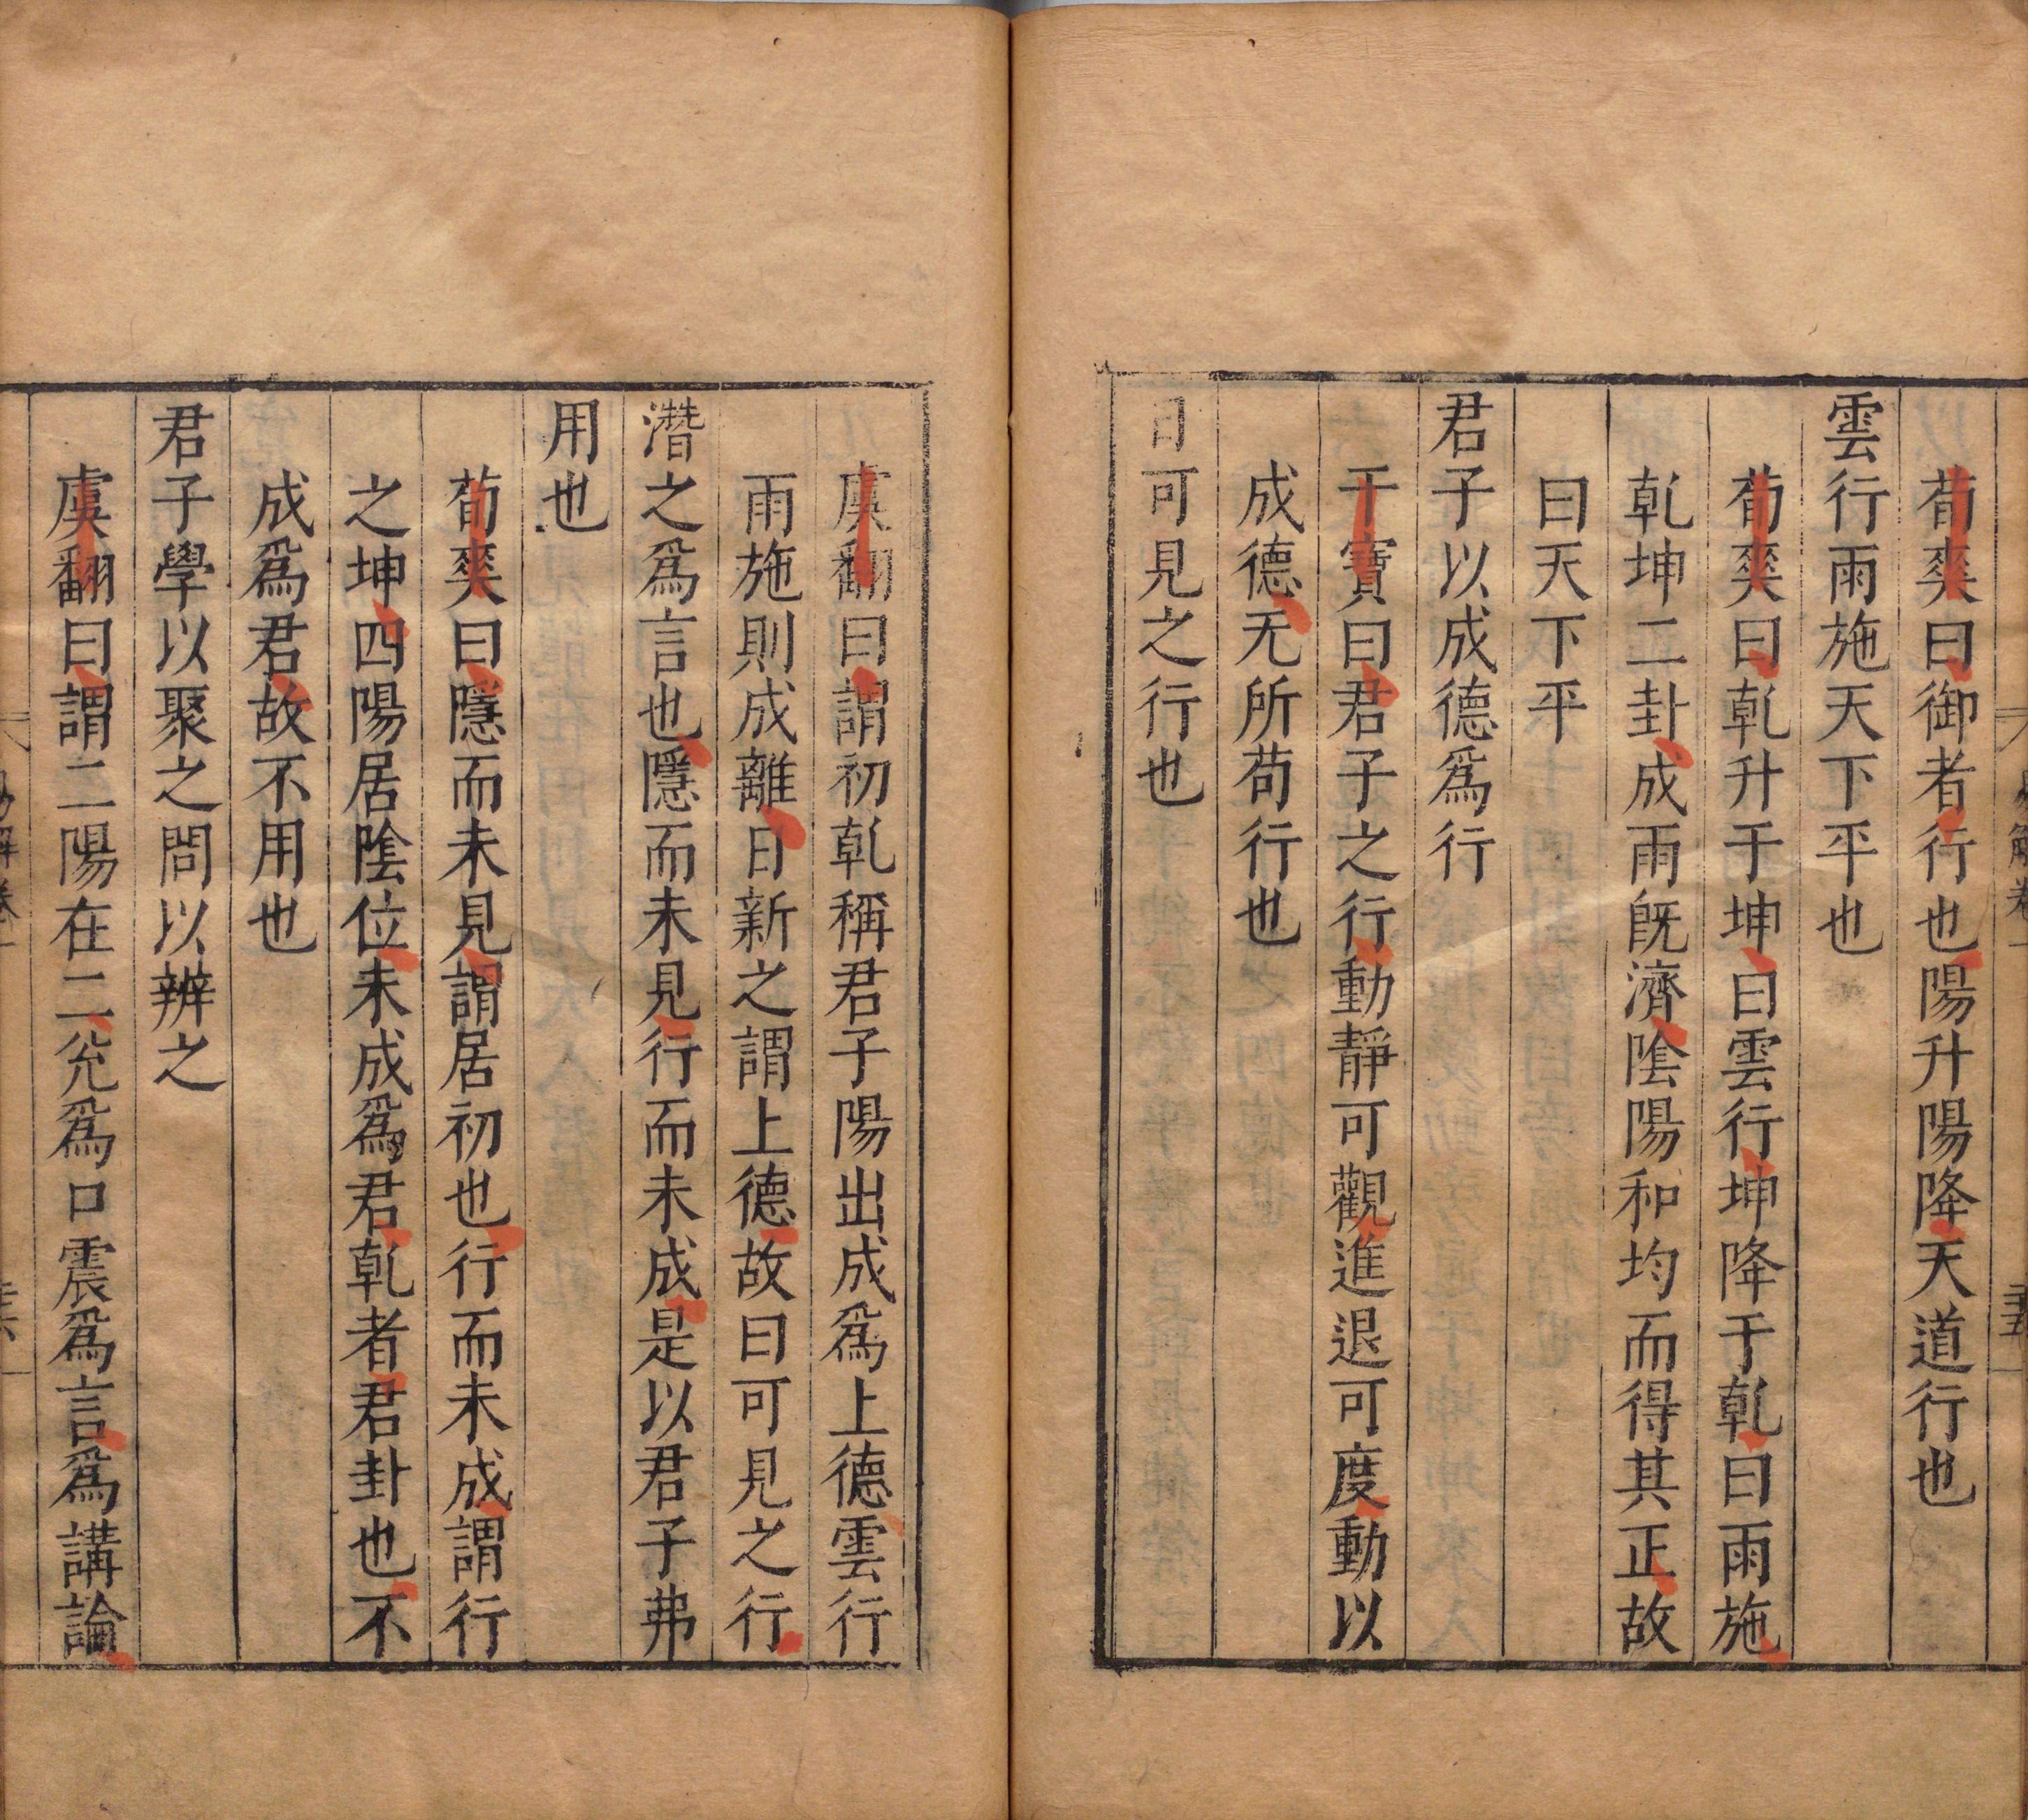 荀爽曰御者行也陽升陽降天道行也
雲行雨施天下平也
荀爽曰乹升于坤曰雲行坤降于乹曰雨施
乹坤二卦成雨旣濟陰陽和均而得其正故
曰天下平
君子以成德爲行
干寶曰君子之行動靜可觀進退可度動以
成德无所苟行也
日可見之行也
虞翻曰謂初乹稱君子陽出成爲上德雲行
雨施則成離日新之謂上德故曰可見之行
潛之爲言也隱而未見行而未成是以君子弗
用也
荀爽曰隱而未見謂居初也行而未成謂行
之坤四陽居陰位未成爲君乹者君卦也不
成爲君故不用也
君子學以聚之問以辨之
虞翻曰謂二陽在二兊爲口震爲言爲講論